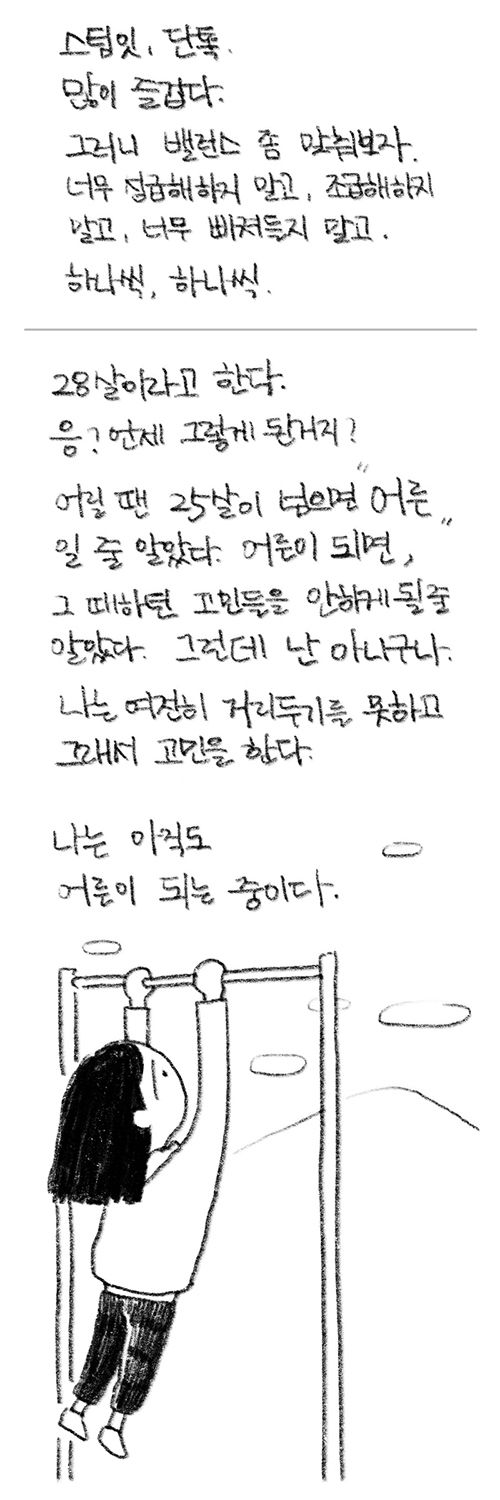 스팀잇, 단톡.
많이 즐겁다.
그러니 밸런스 좀 맞춰보자.
너무 성급해하지 말고, 조급해하지
말고, 너무 빠져들지 말고.
하나씩, 하나씩.
28살이라고 한다.
응? 언제 그렇게 된거지?
어릴 땐 25살이 넘으면 "어른"
일 줄 알았다. 어른이 되면,
그 때하던 고민들을 안하게 될 줄
알았다. 그런데 난 아니구나.
나는 여전히 거리두기를 못하고
그래서 고민을 한다.
나는 아직도
어른이 되는 중이다.